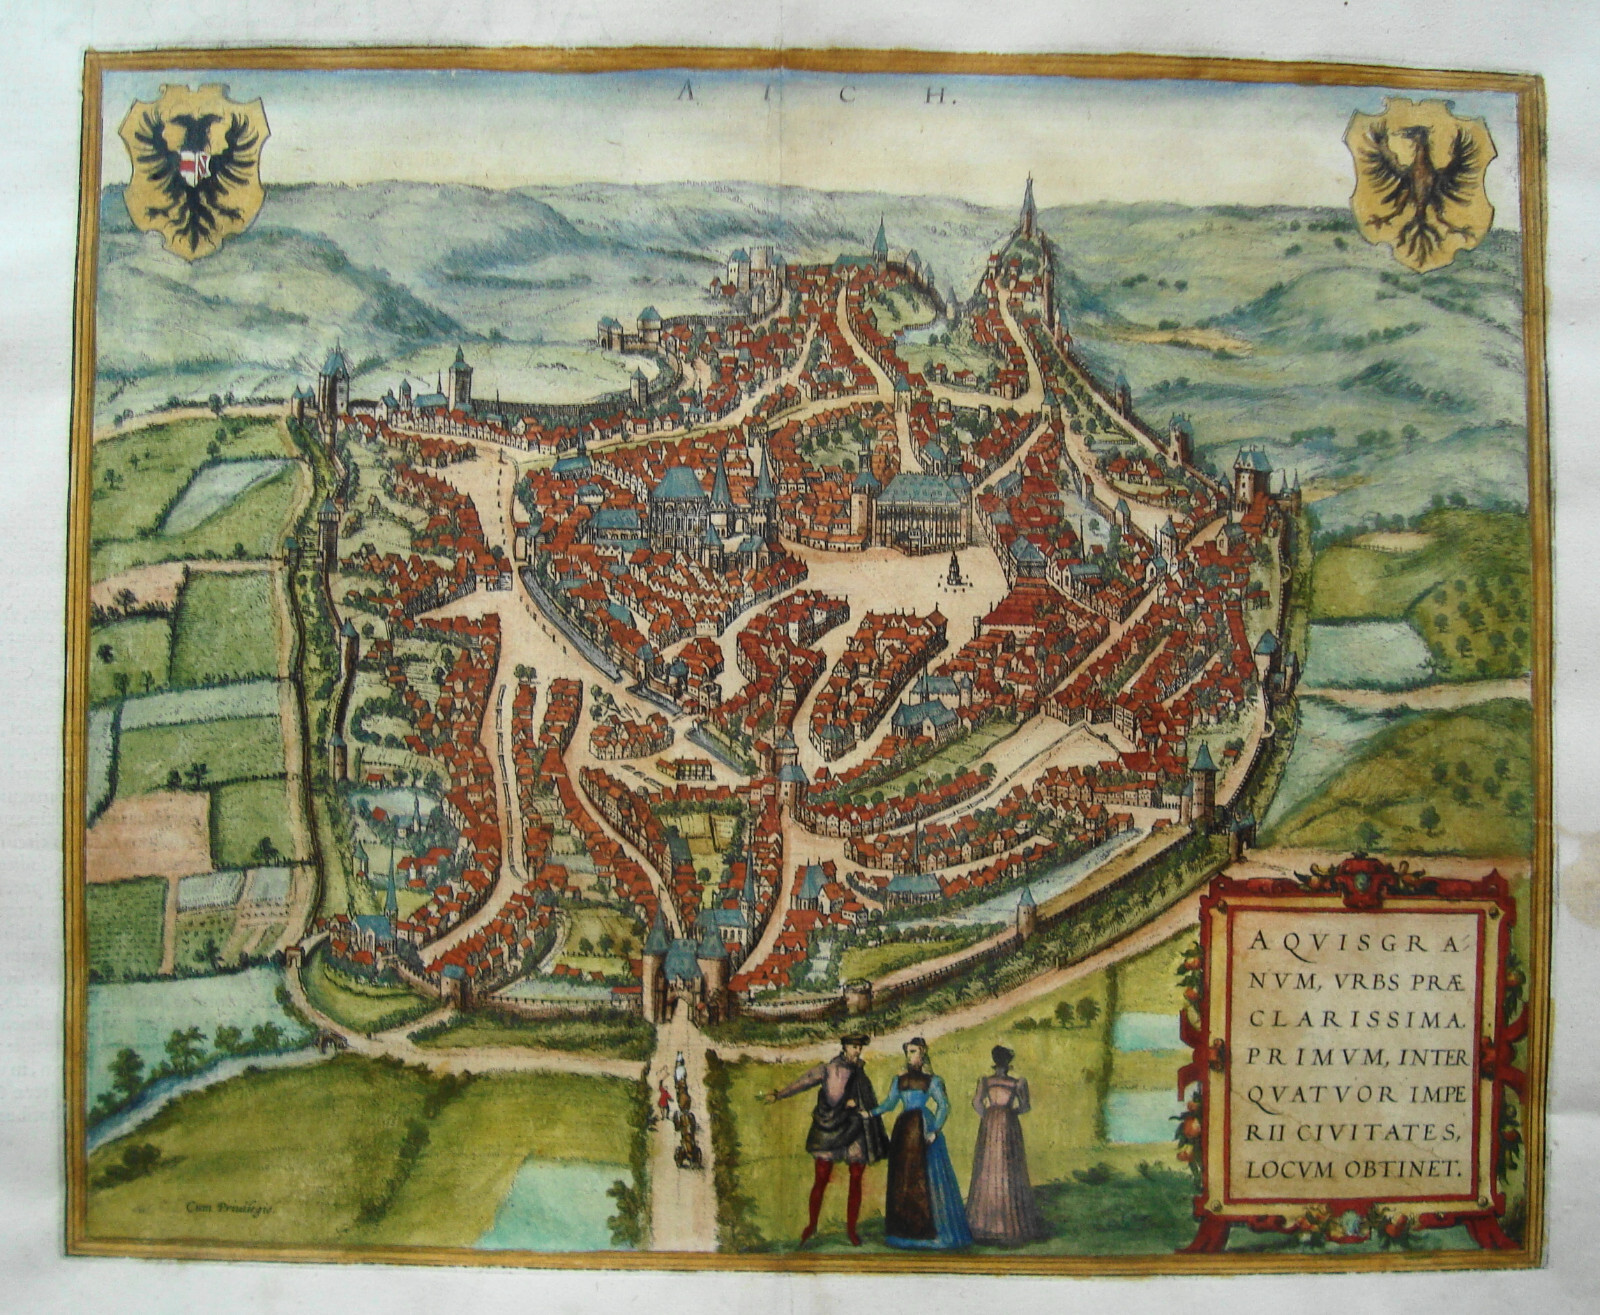 AICH.
AQVISGRA-
NVM, VRBS PRÆ
CLARISSIMA.
PRIMVM, INTER
QVATVOR IMPE
RII CIVITATES,
LOCVM OBTINET.
Cum Priuilegio.